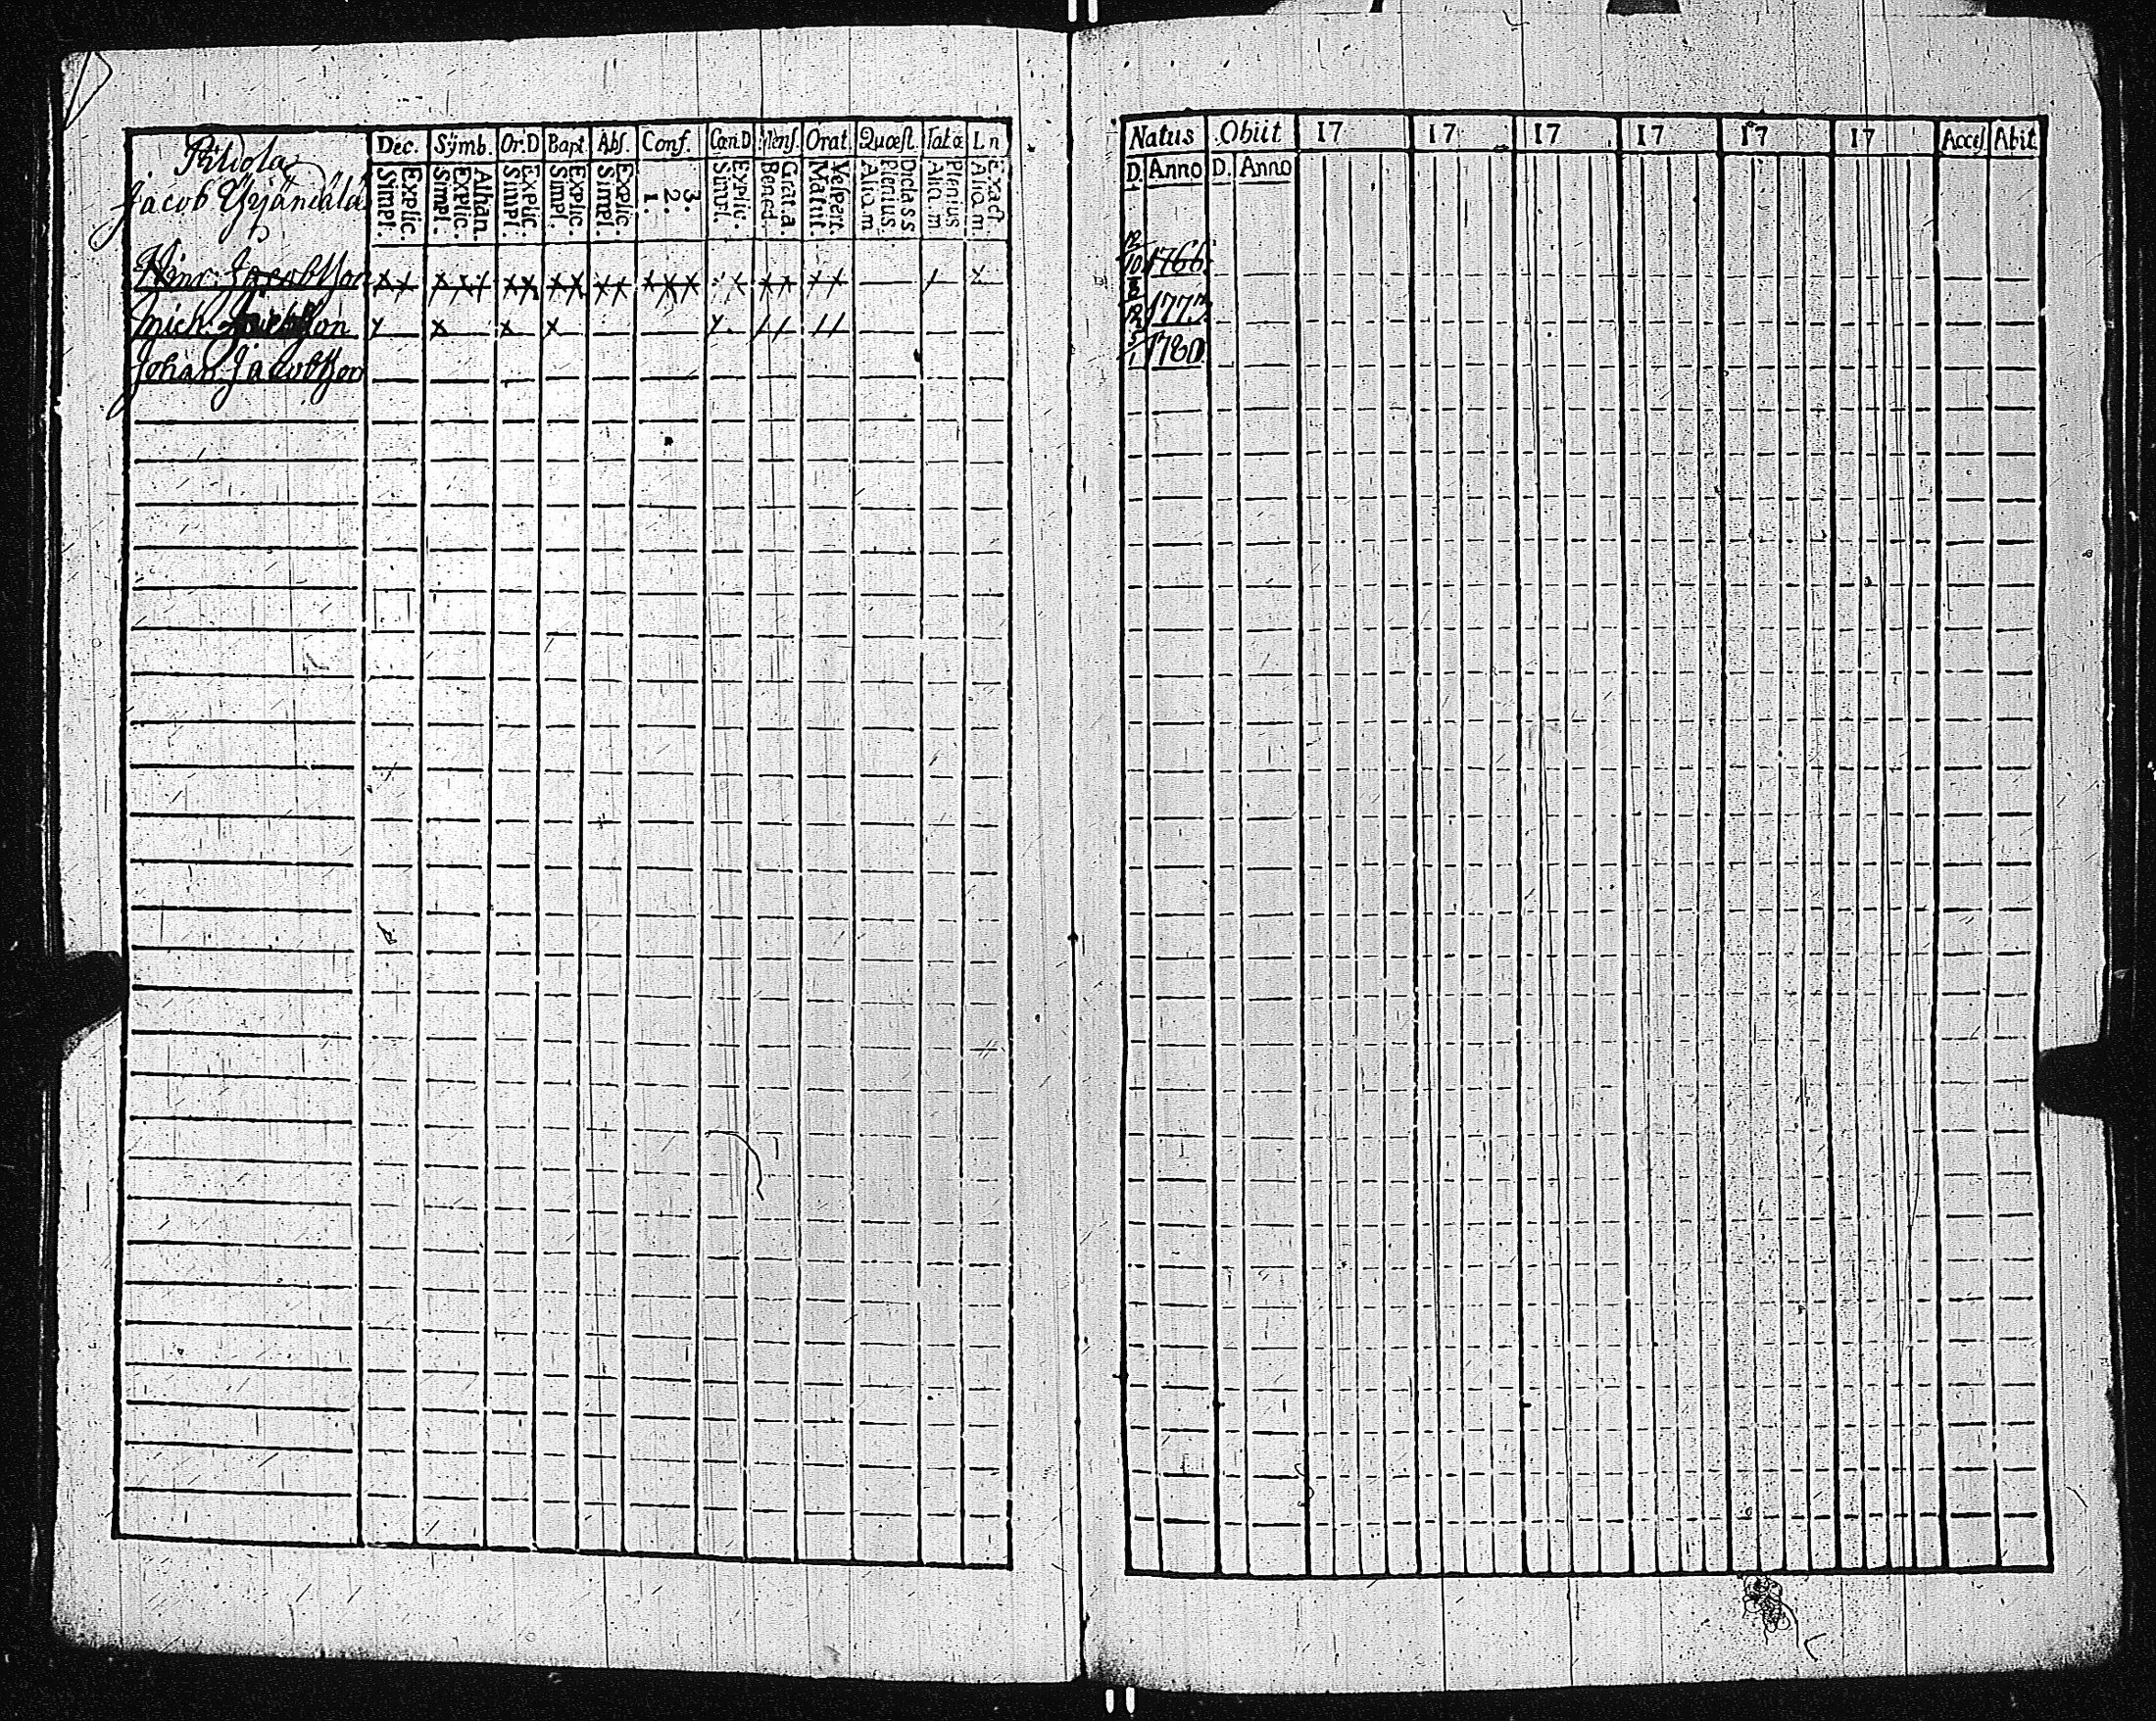 Dec. Symb. Or.D Bapt Abs. Conf. Cœn.D Mens. Orat. Quæst. Tab.œ L.n
Explic. Simpl. Athan. Explic. Simpl. Explic. Simpl. Explic. Simpl. Explic. Simpl. 3. 2. 1. Explic. Simpl. Grat.a Bened. Vespert. Matut. Dicta ss Plenius Aliq.m Plenius Aliq.m Exact. Aliq.m
Jacob
Hinr. Jacobsson
Mich. Jacobsson
Johan Jacobsson
Natus Obiit 17 17 17 17 17 17 Acces Abit
D. Anno D. Anno
12/10 1766
1773
5/1 1780